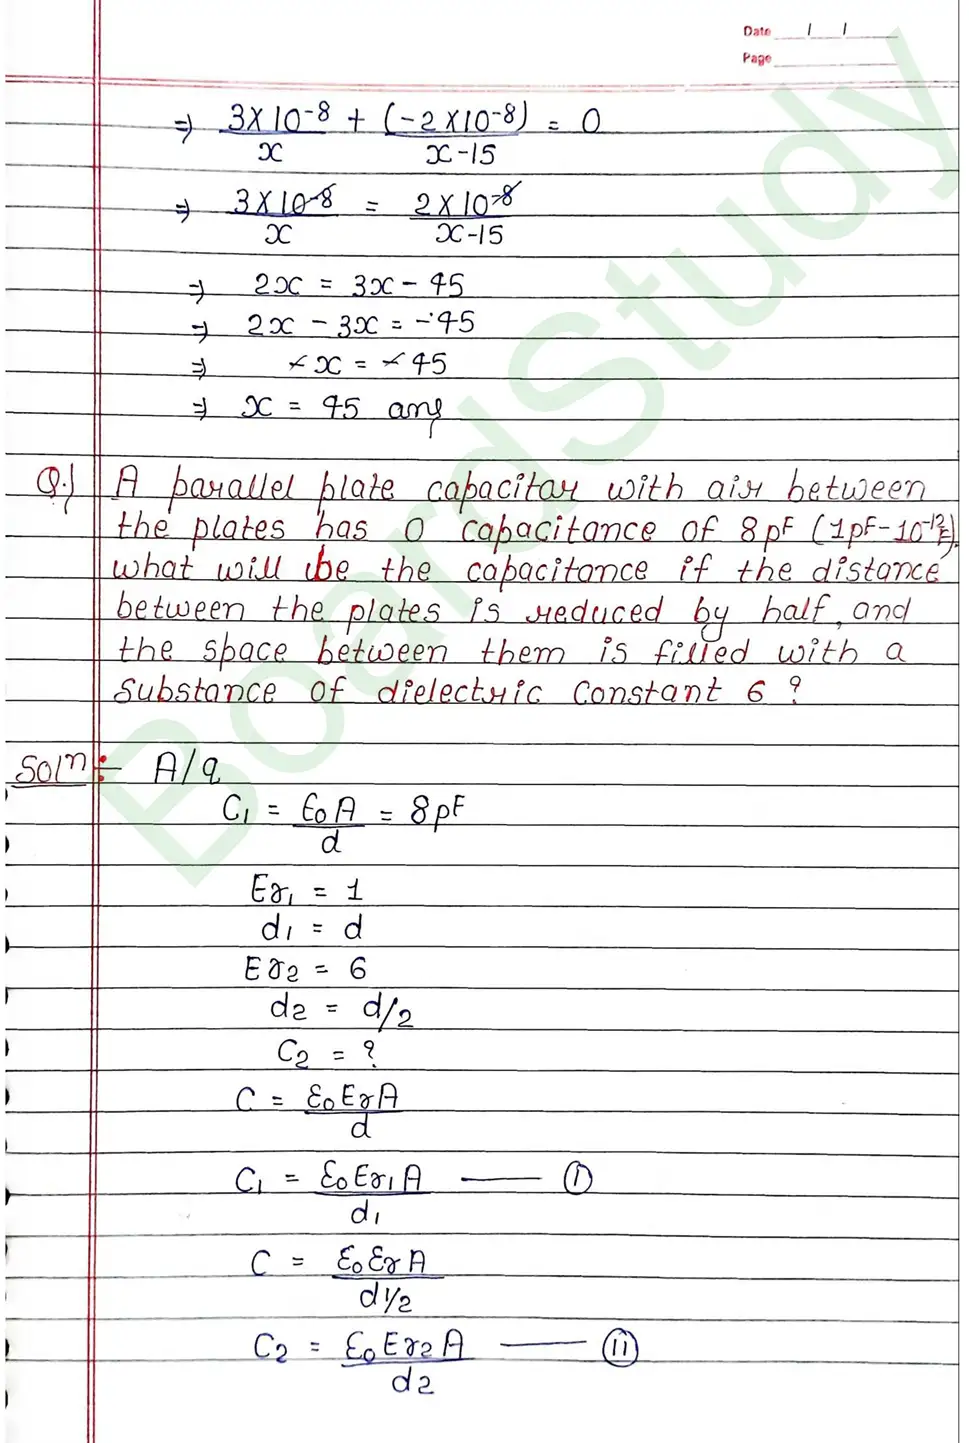 Date / /
Page
⇒ 3×10⁻⁸/x + (-2×10⁻⁸)/x-15 = 0
⇒ 3×10⁻⁸/x = 2×10⁻⁸/x-15
⇒ 2x = 3x - 45
⇒ 2x - 3x = -45
⇒ -x = -45
⇒ x = 45 ans
Q.) A parallel plate capacitor with air between
the plates has a capacitance of 8pF (1pF-10⁻¹²F).
what will be the capacitance if the distance
between the plates is reduced by half, and
the space between them is filled with a
substance of dielectric constant 6 ?
Solⁿ:- A/q
C₁ = ε₀A/d = 8pF
Er₁ = 1
d₁ = d
Er₂ = 6
d₂ = d/2
C₂ = ?
C = ε₀ErA/d
C₁ = ε₀Er₁A/d₁ —— (i)
C = ε₀εrA/d1/2
C₂ = ε₀Er₂A/d₂ —— (ii)
BoardStudy